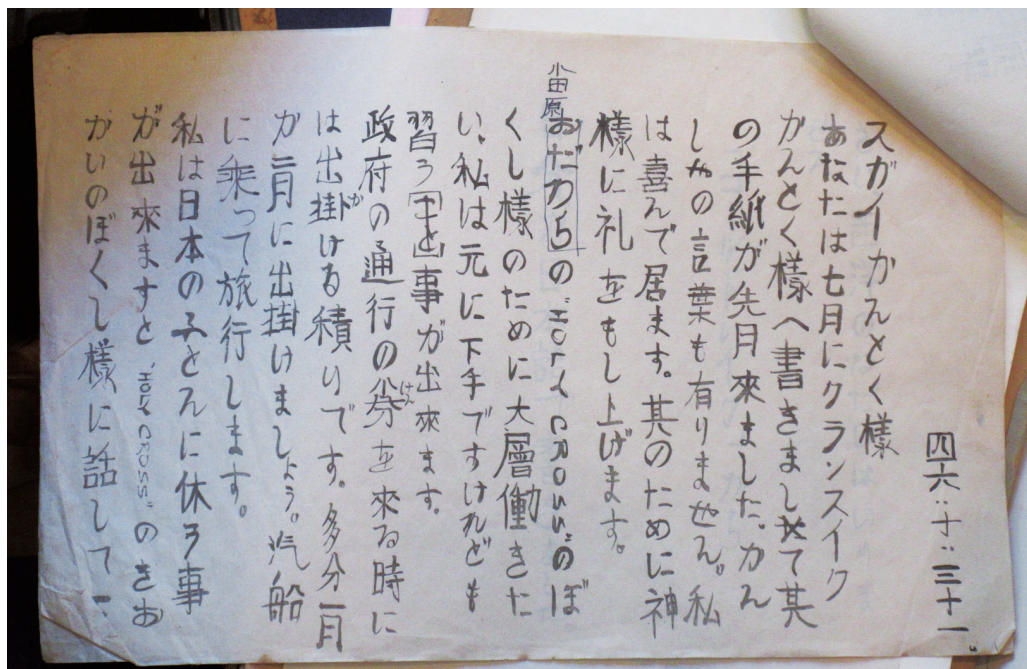 四六.十.三十一。
スガイーかんとく様
あなたは七月にクランスイーク
かんとく様へ書きまして其
の手紙が先月來ました。かん
しやの言葉も有りません。私
は喜んで居ます。其のために神
様に礼をもし上げます。
小田原
おだわらの "HOLY CROSS" のぼ
くし様のために大層働きた
い。私は元に下手ですけれども
習う事が出來ます。
政府の通行の
は出掛ける積りです。多分一月
か二月に出掛けましょう。汽船
に乘って旅行します。
私は日本の子どんに休う事
が出來ますと "HOLY CROSS" のきお
かいのぼくし様に話して下